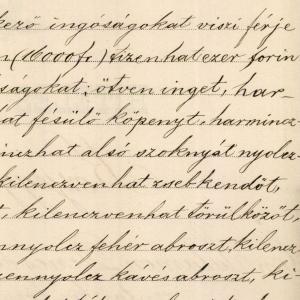 kező ingóságokat viszi férje
n (16000 fr.) tizenhatezer forin
ságokat: ötven inget, har-
at fésülő köpenyt, harmincz-
inczhat alsó szoknyát nyolcz-
kilenczvenhat zsebkendőt,
t, kilenczvenhat törülközőt,
nnyolcz fehér abroszt, kilencz-
zennyolcz kávés abroszt, ki-